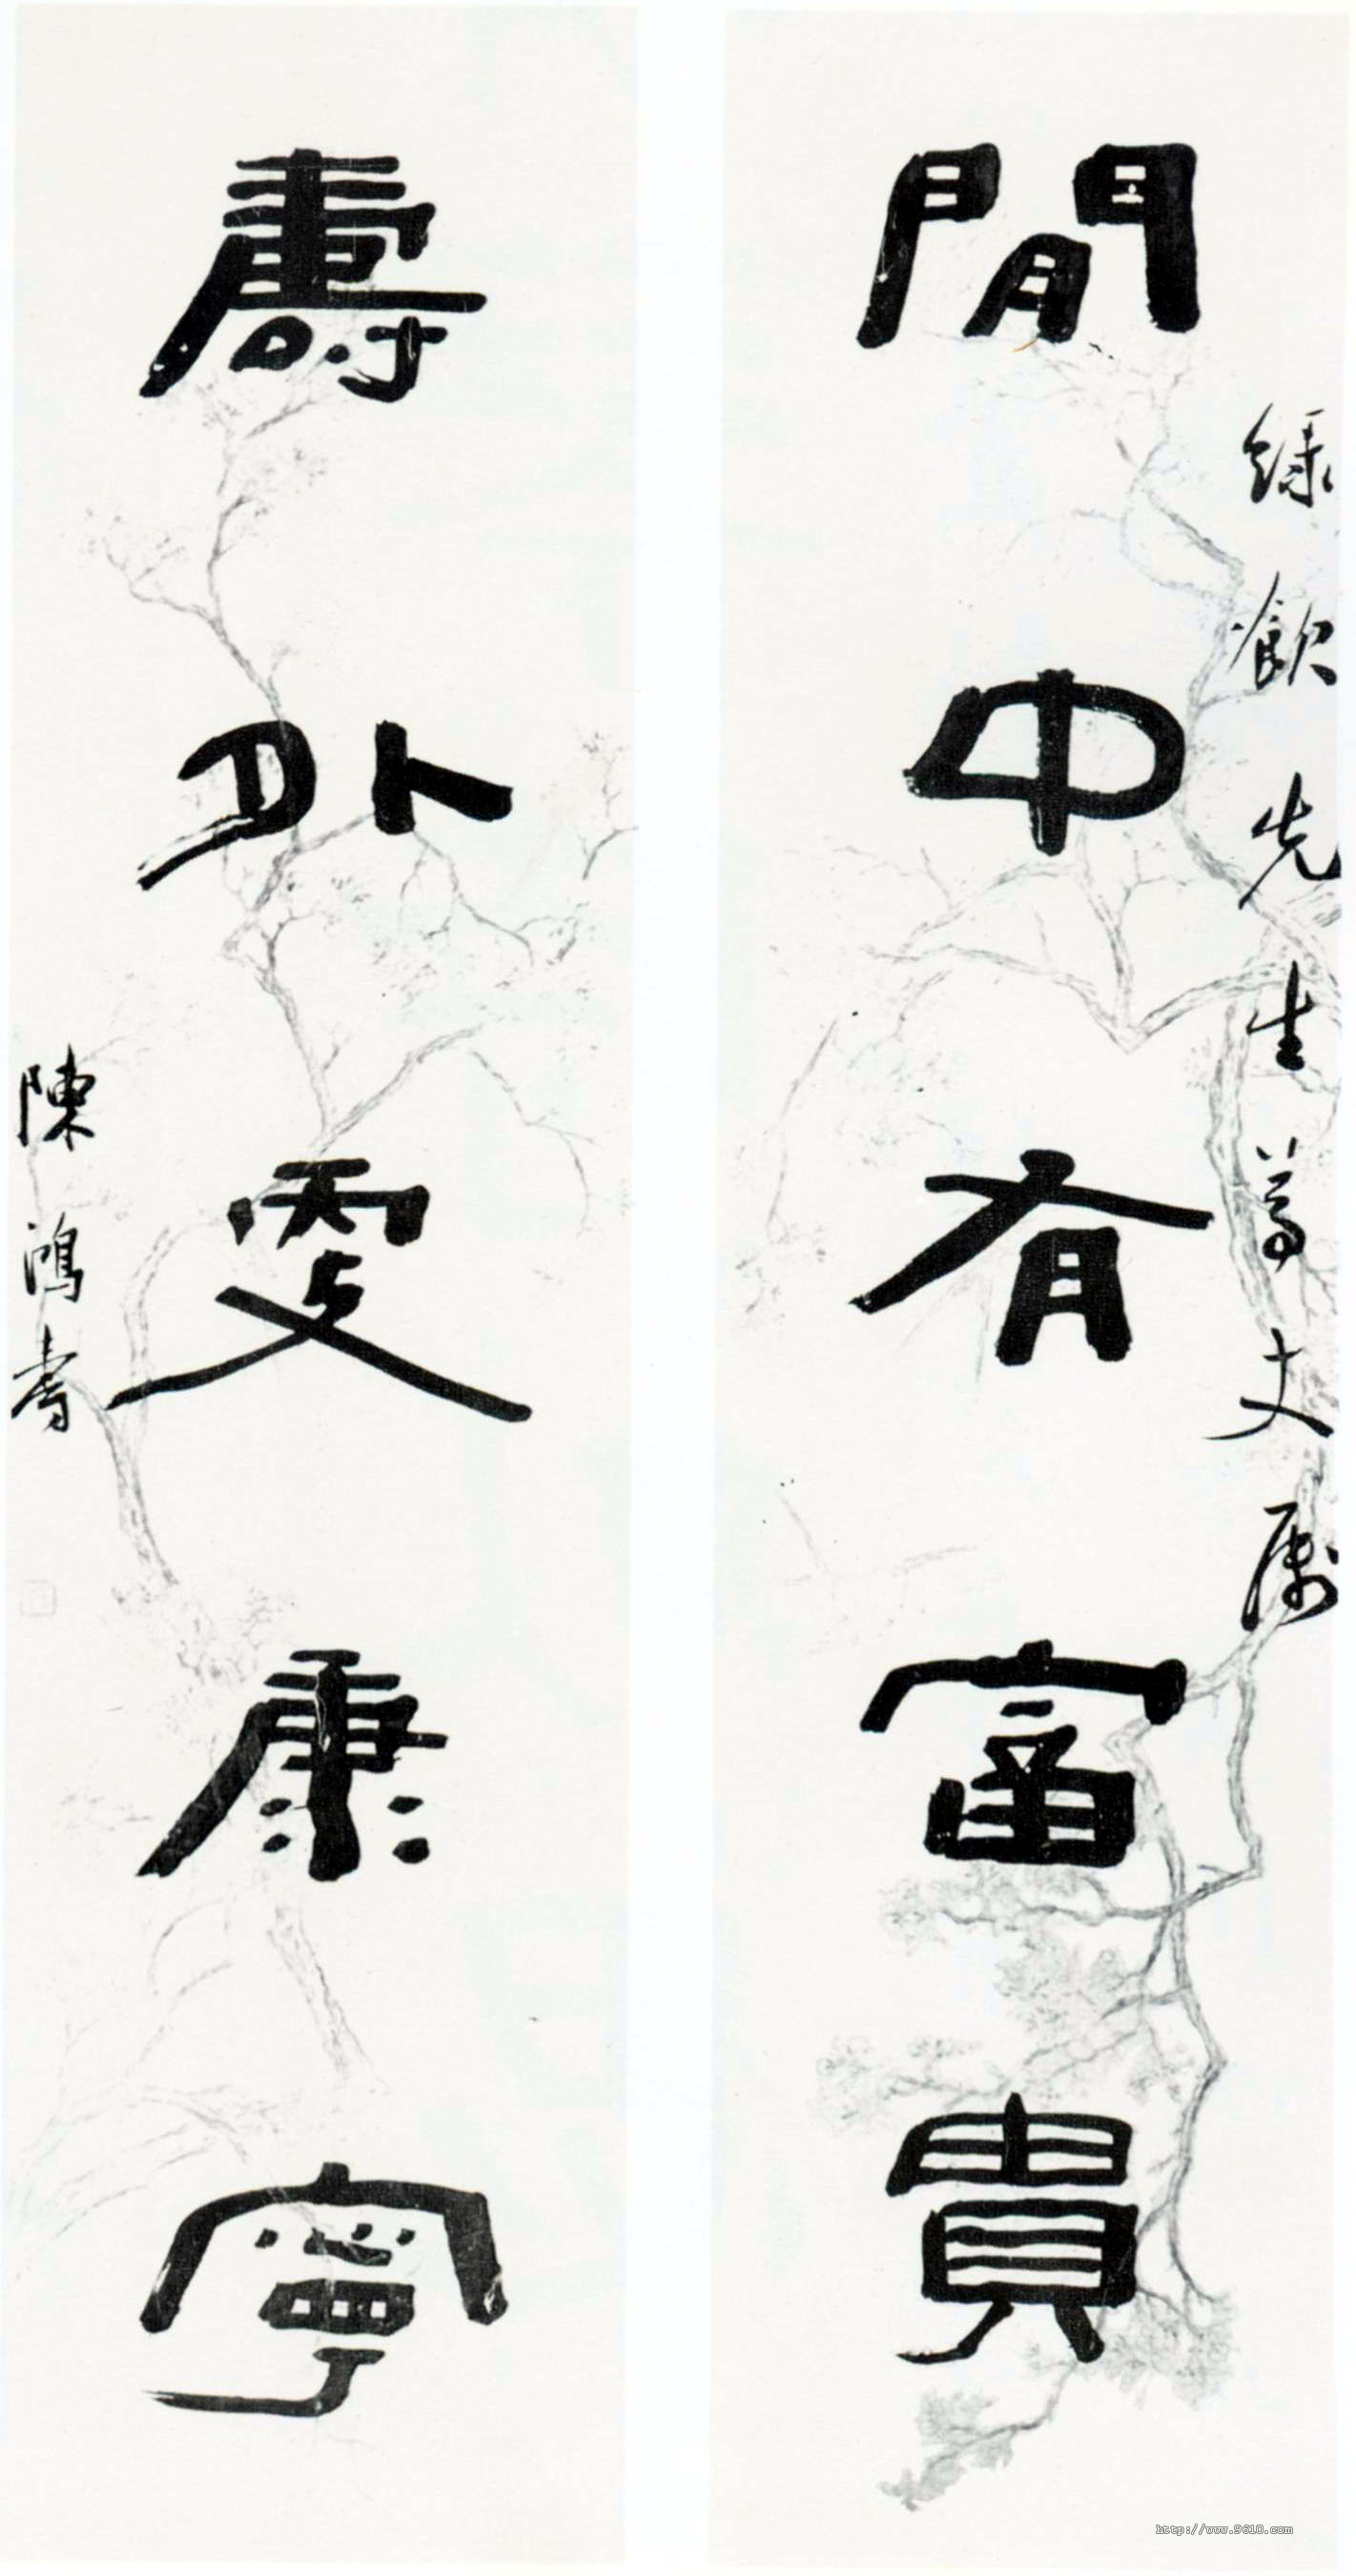 綠飲先生尊丈屬
閒中有富貴
壽外更康寧
陳鴻壽
http://www.9610.com